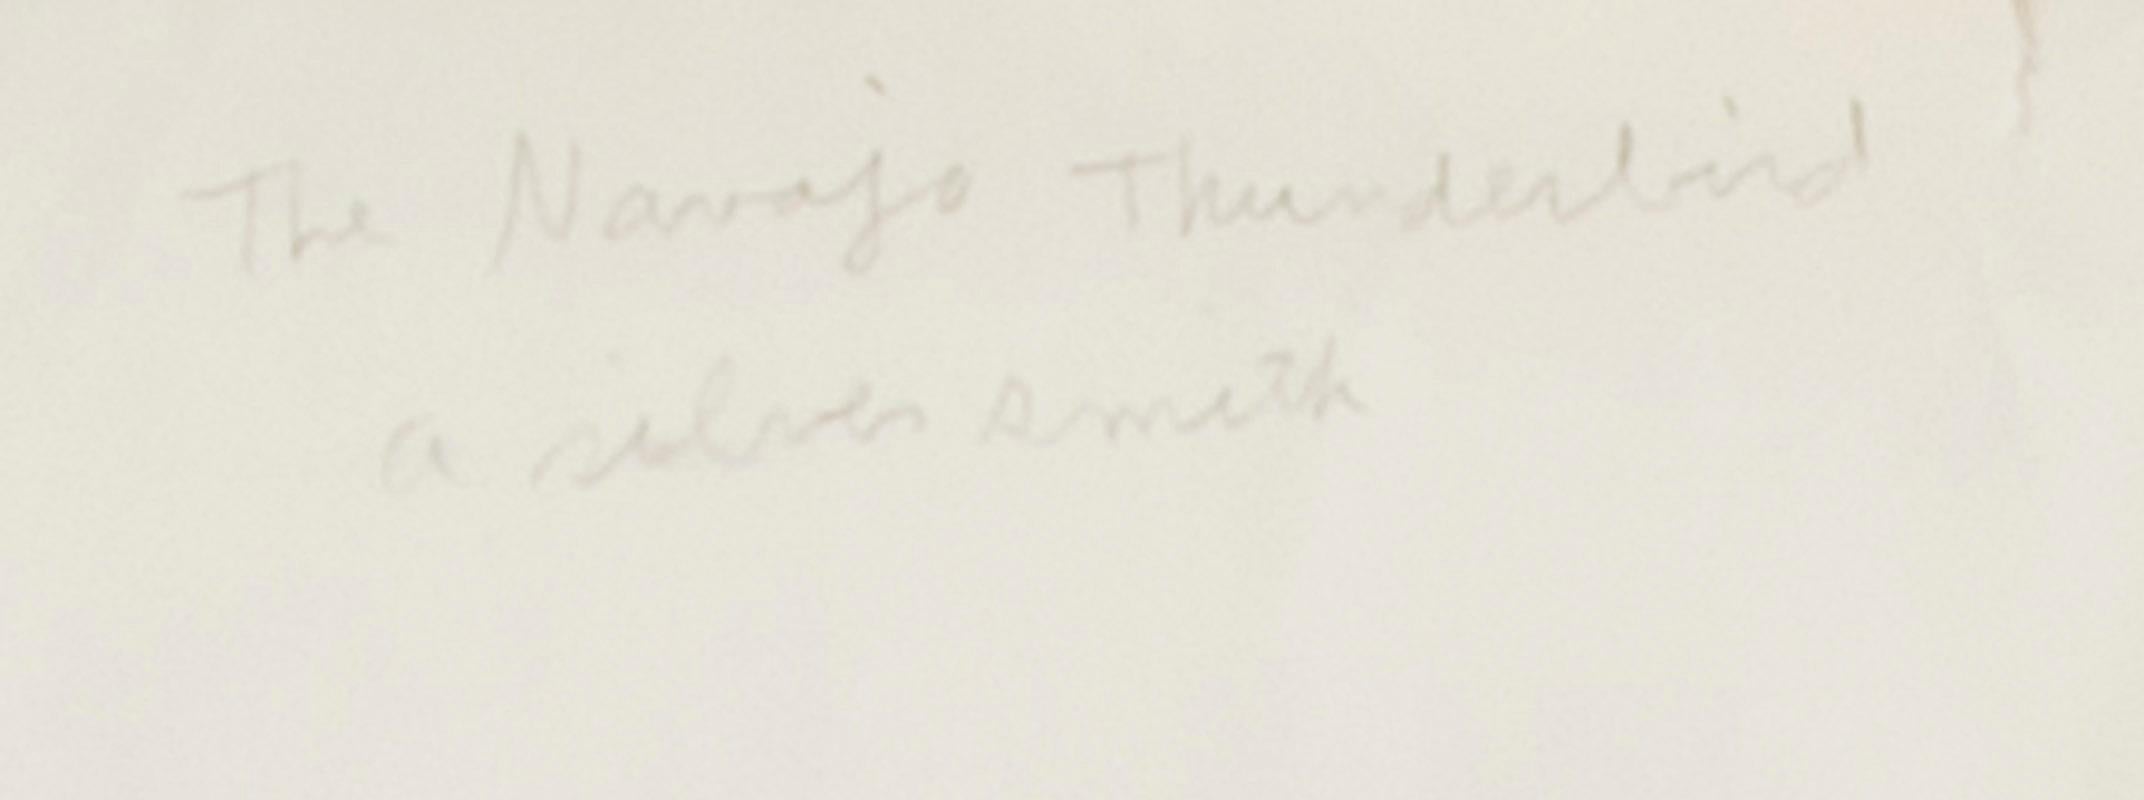 The Navajo Thunderbird
a silver smith